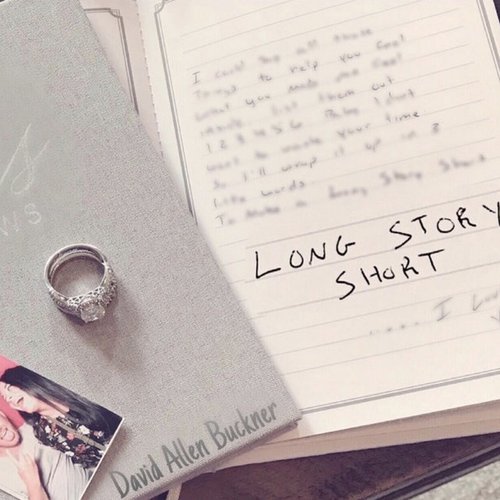 I could say all those
Things to help you feel
what you made me feel
inside, list them out
1 2 3 4 5 6 Baby I don't
want to waste your time
So I'll wrap it up in 3
words
To Make a Long Story Short
LONG STORY
SHORT
.... I
David Allen Buckner